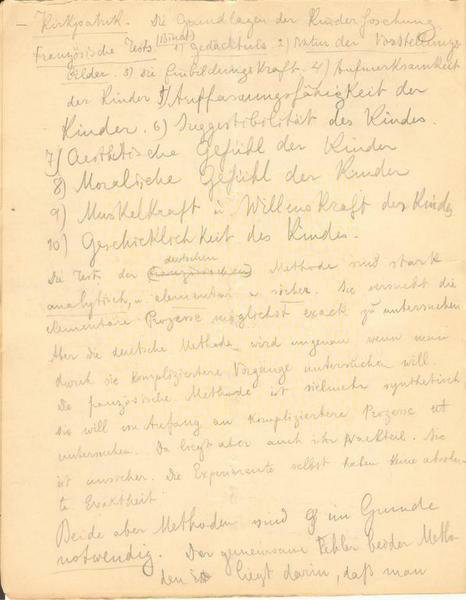 – Kirkpatrik. Die Grundlagen der Kinderforschung
Französische Tests (Binet) 1) Gedächtnis. 2) Natur der Vorstellungs
bilder. 3) die Einbildungskraft. 4) Aufmerksamkeit
der Kinder 5) Auffassungsfähigkeit der
Kinder. 6) Suggestibilität des Kindes.
7) Aesthetische Gefühl der Kinder
8) Moralische Gefühl der Kinder
9) Muskelkraft u Willenskraft des Kindes
10) Geschicklichkeit des Kindes.
Die Tests der (französischen) deutschen Methode sind stark
analytisch, u elementar u sicher. Sie versucht die
elementare Prozesse möglichst exact zu untersuchen
Aber die deutsche Methode wird ungenau wenn man
durch sie kompliziertere Vorgänge untersuchen will.
Die französische Methode ist vielmehr synthetisch
sie will von Anfang an kompliziertere Prozesse
untersuchen. Da liegt aber auch ihr Nachteil. Sie
ist unsicher. Die Experimente selbst haben keine absolu-
te Exaktheit.
Beide aber Methoden sind im Grunde
notwendig. Der gemeinsam Fehler beider Metho
den liegt darin, daß man